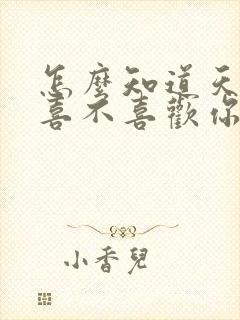 怎麼知道天
喜不喜歡你
小香兒